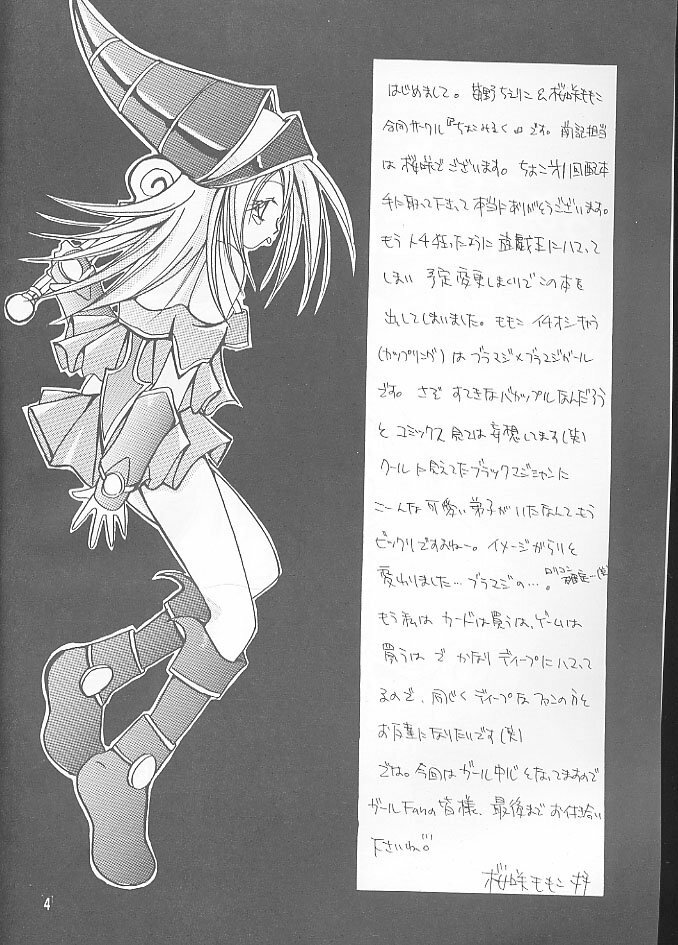 はじめまして。 野ちえりこ&桜咲ももこ
合同サークル『ちょこみるく』です。 前記担当
は桜咲でございます。ちょこオリ回配本
手に取って下さって本当にありがとうございます。
もう 狂ったように 遊戯王にハマって
しまい 予定変更しまくりでこの本を
出してしまいました。ももこ イチオシキャラ
(カップリング)はブラマジ×ブラマジガール
です。 さぞ すてきなバカップルなんだろう
と コミックス 見ては妄想してます(笑)
クールに見えてたブラックマジシャンに
こーんな可愛い弟子がいたなんてもう
ビックリですよねー。イメージがらりと
変わりました…ブラマジの…。ロリコン確定…(笑)
もう私は カードは買うは、ゲームは
買うは で かなり ディープにハマって
るので、同じく ディープな ファンの方と
お友達になりたいです(笑)
では。今回は ガール中心となってますので
ガールFanの皆様、最後まで お付き合い
下さいね。
桜咲ももこ 拝
4